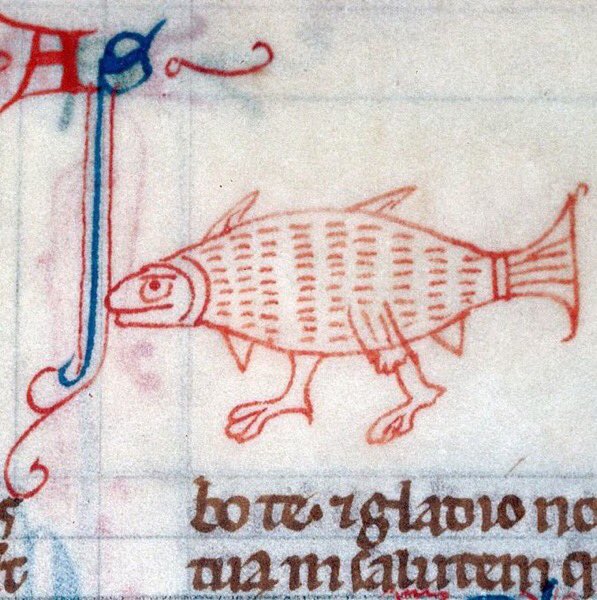 AS
s bo te · ⁊ gladio no
in salutem q